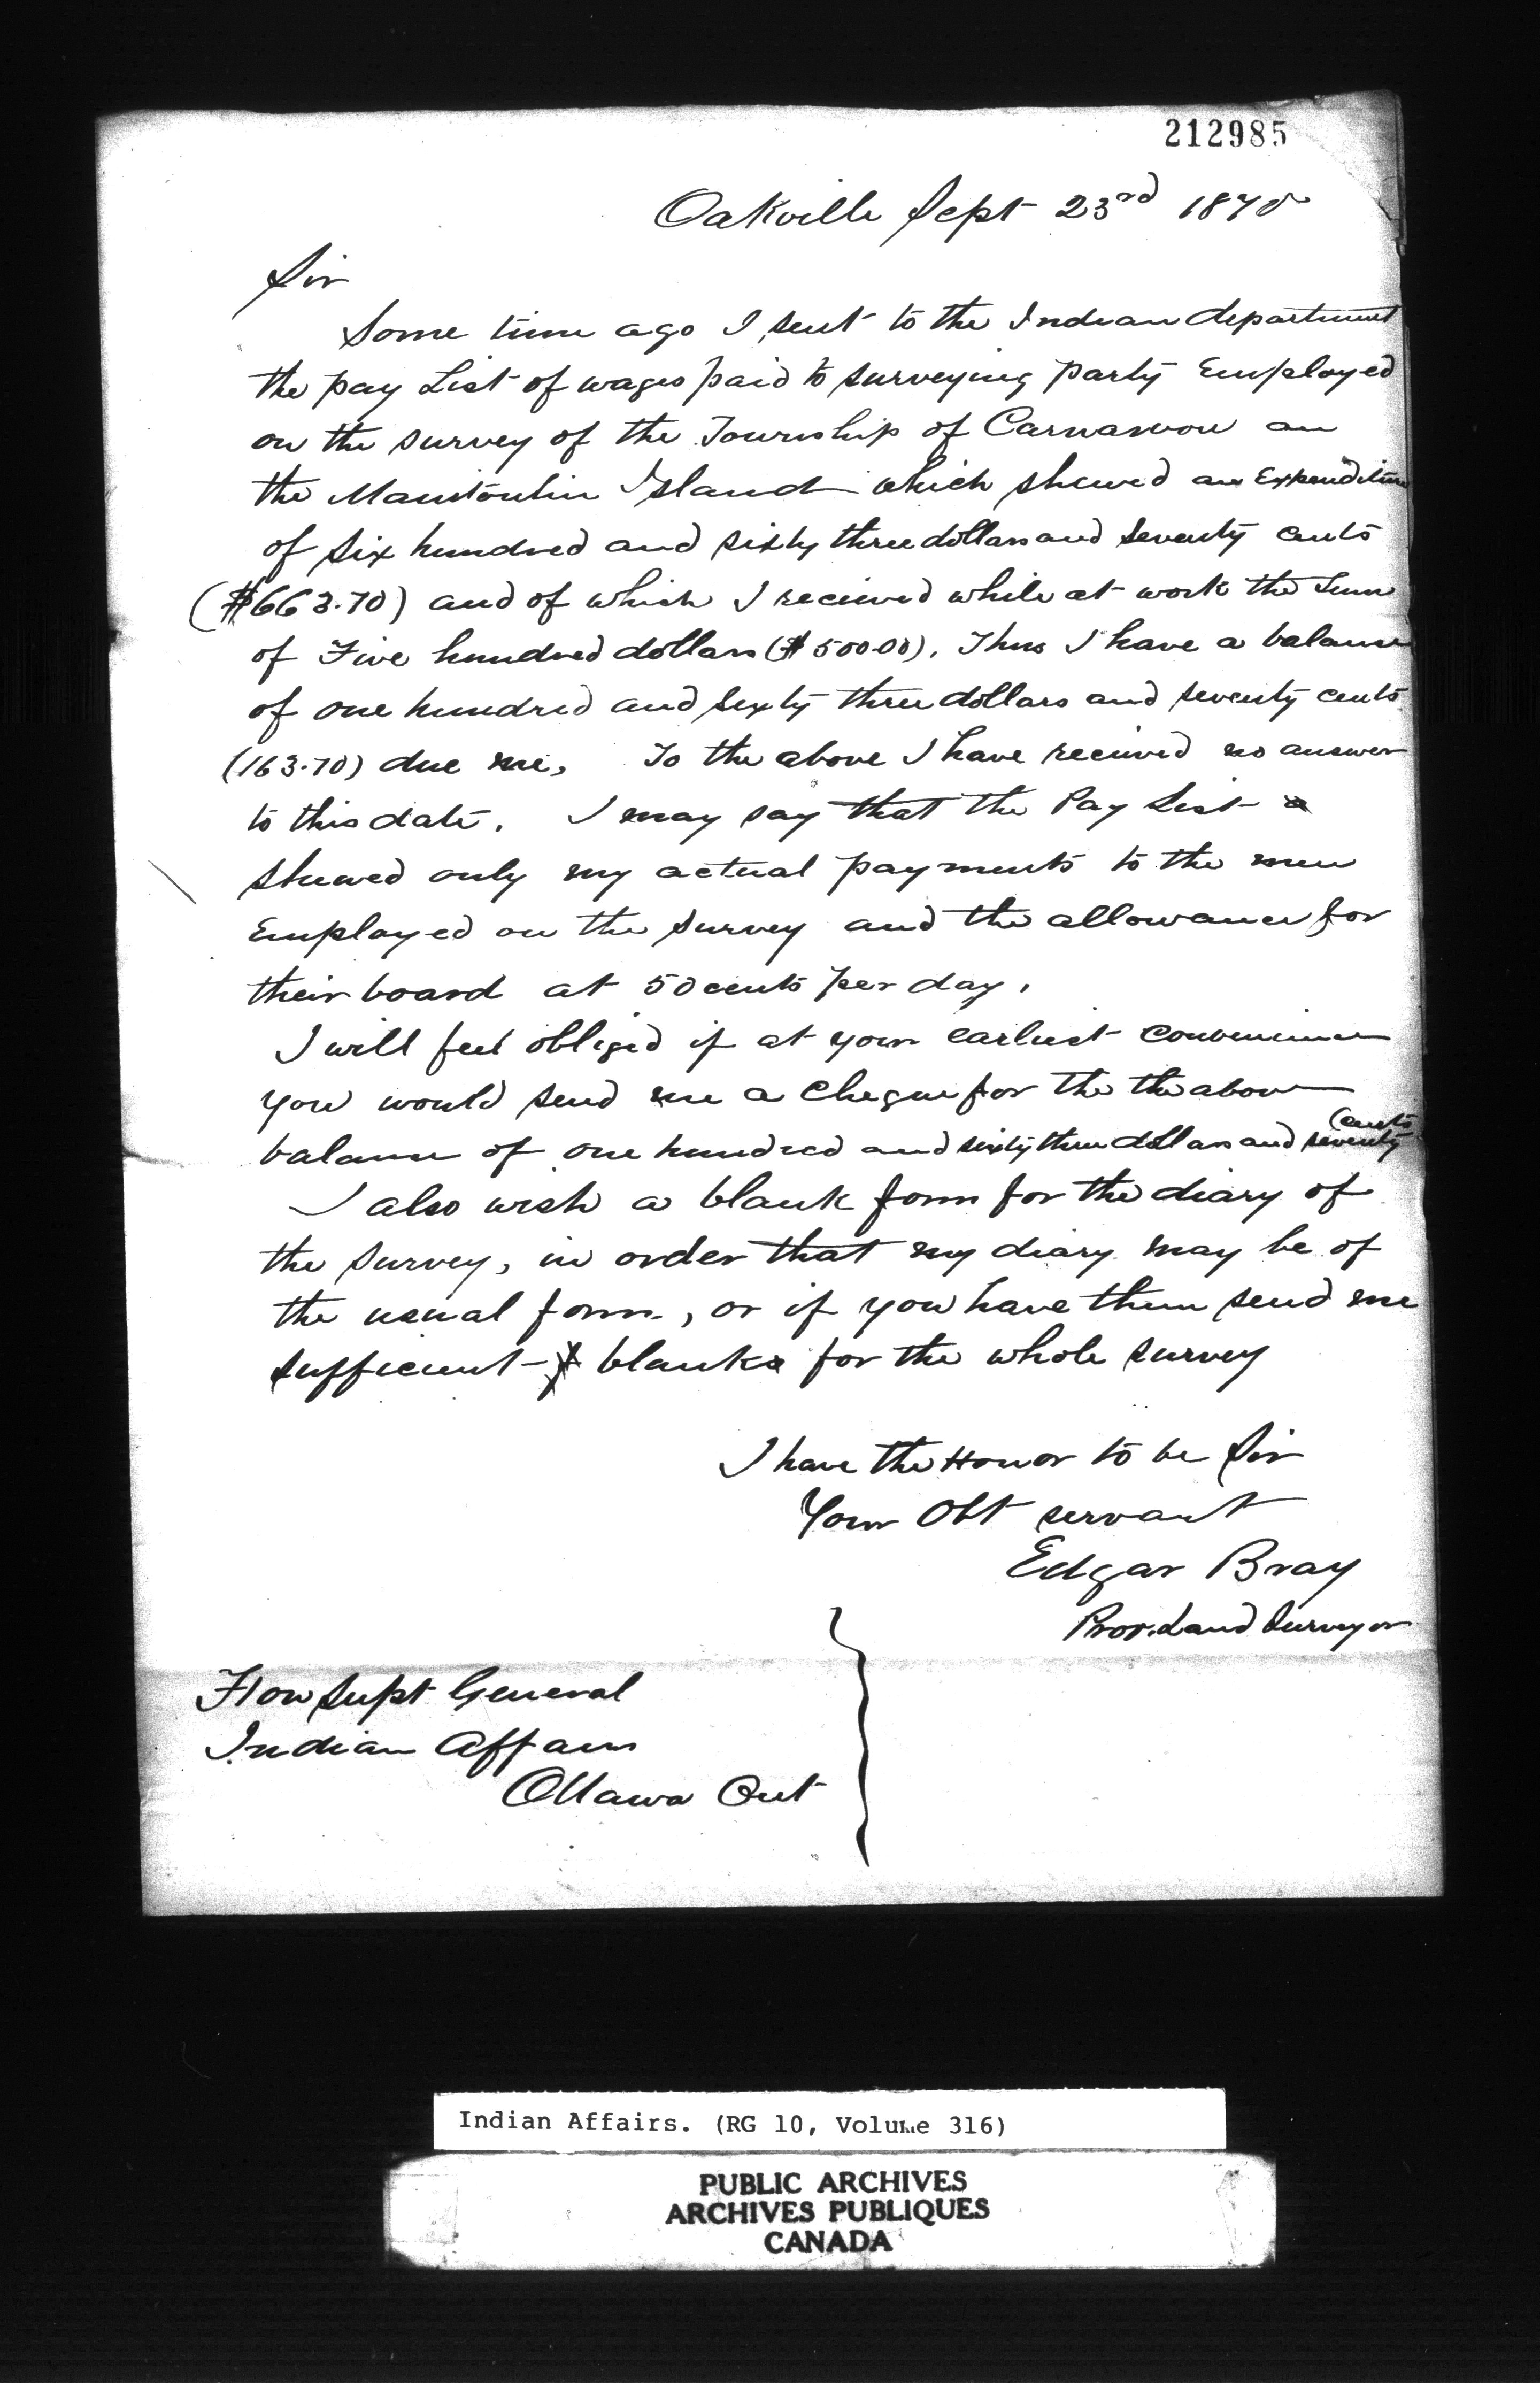 212985
Oakville Sept 23rd 1870
Sir
Some time ago I sent to the Indian department
the pay List of wages paid to surveying party Employed
on the survey of the Township of Carnarvon an
the Manitoulin Island which shewed an Expenditure
of six hundred and sixty three dollars and seventy cents
($663.70) and of which I recieved while at work the sum
of Five hundred dollars ($500.00). Thus I have a balance
of one hundred and sixty three dollars and seventy cents
(163.70) due me, To the above I have received no answer
to this date. I may say that the Pay List
shewed only my actual payments to the men
Employed on the survey and the allowance for
their board at 50 cents per day.
I will feel obliged if at your earliest convenience
you would send me a cheque for the the above
balance of one hundred and sixty three dollars and seventy
(cents
I also wish a blank form for the diary of
the survey, in order that my diary may be of
the usual form, or if you have them send me
sufficient blanks for the whole survey
I have the Honor to be Sir
Your Obt servant
Edgar Bray
Prov. Land Surveyor
Hon Supt General
Indian Affairs
Ottawa Ont
Indian Affairs. (RG 10, Volume 316)
PUBLIC ARCHIVES
ARCHIVES PUBLIQUES
CANADA